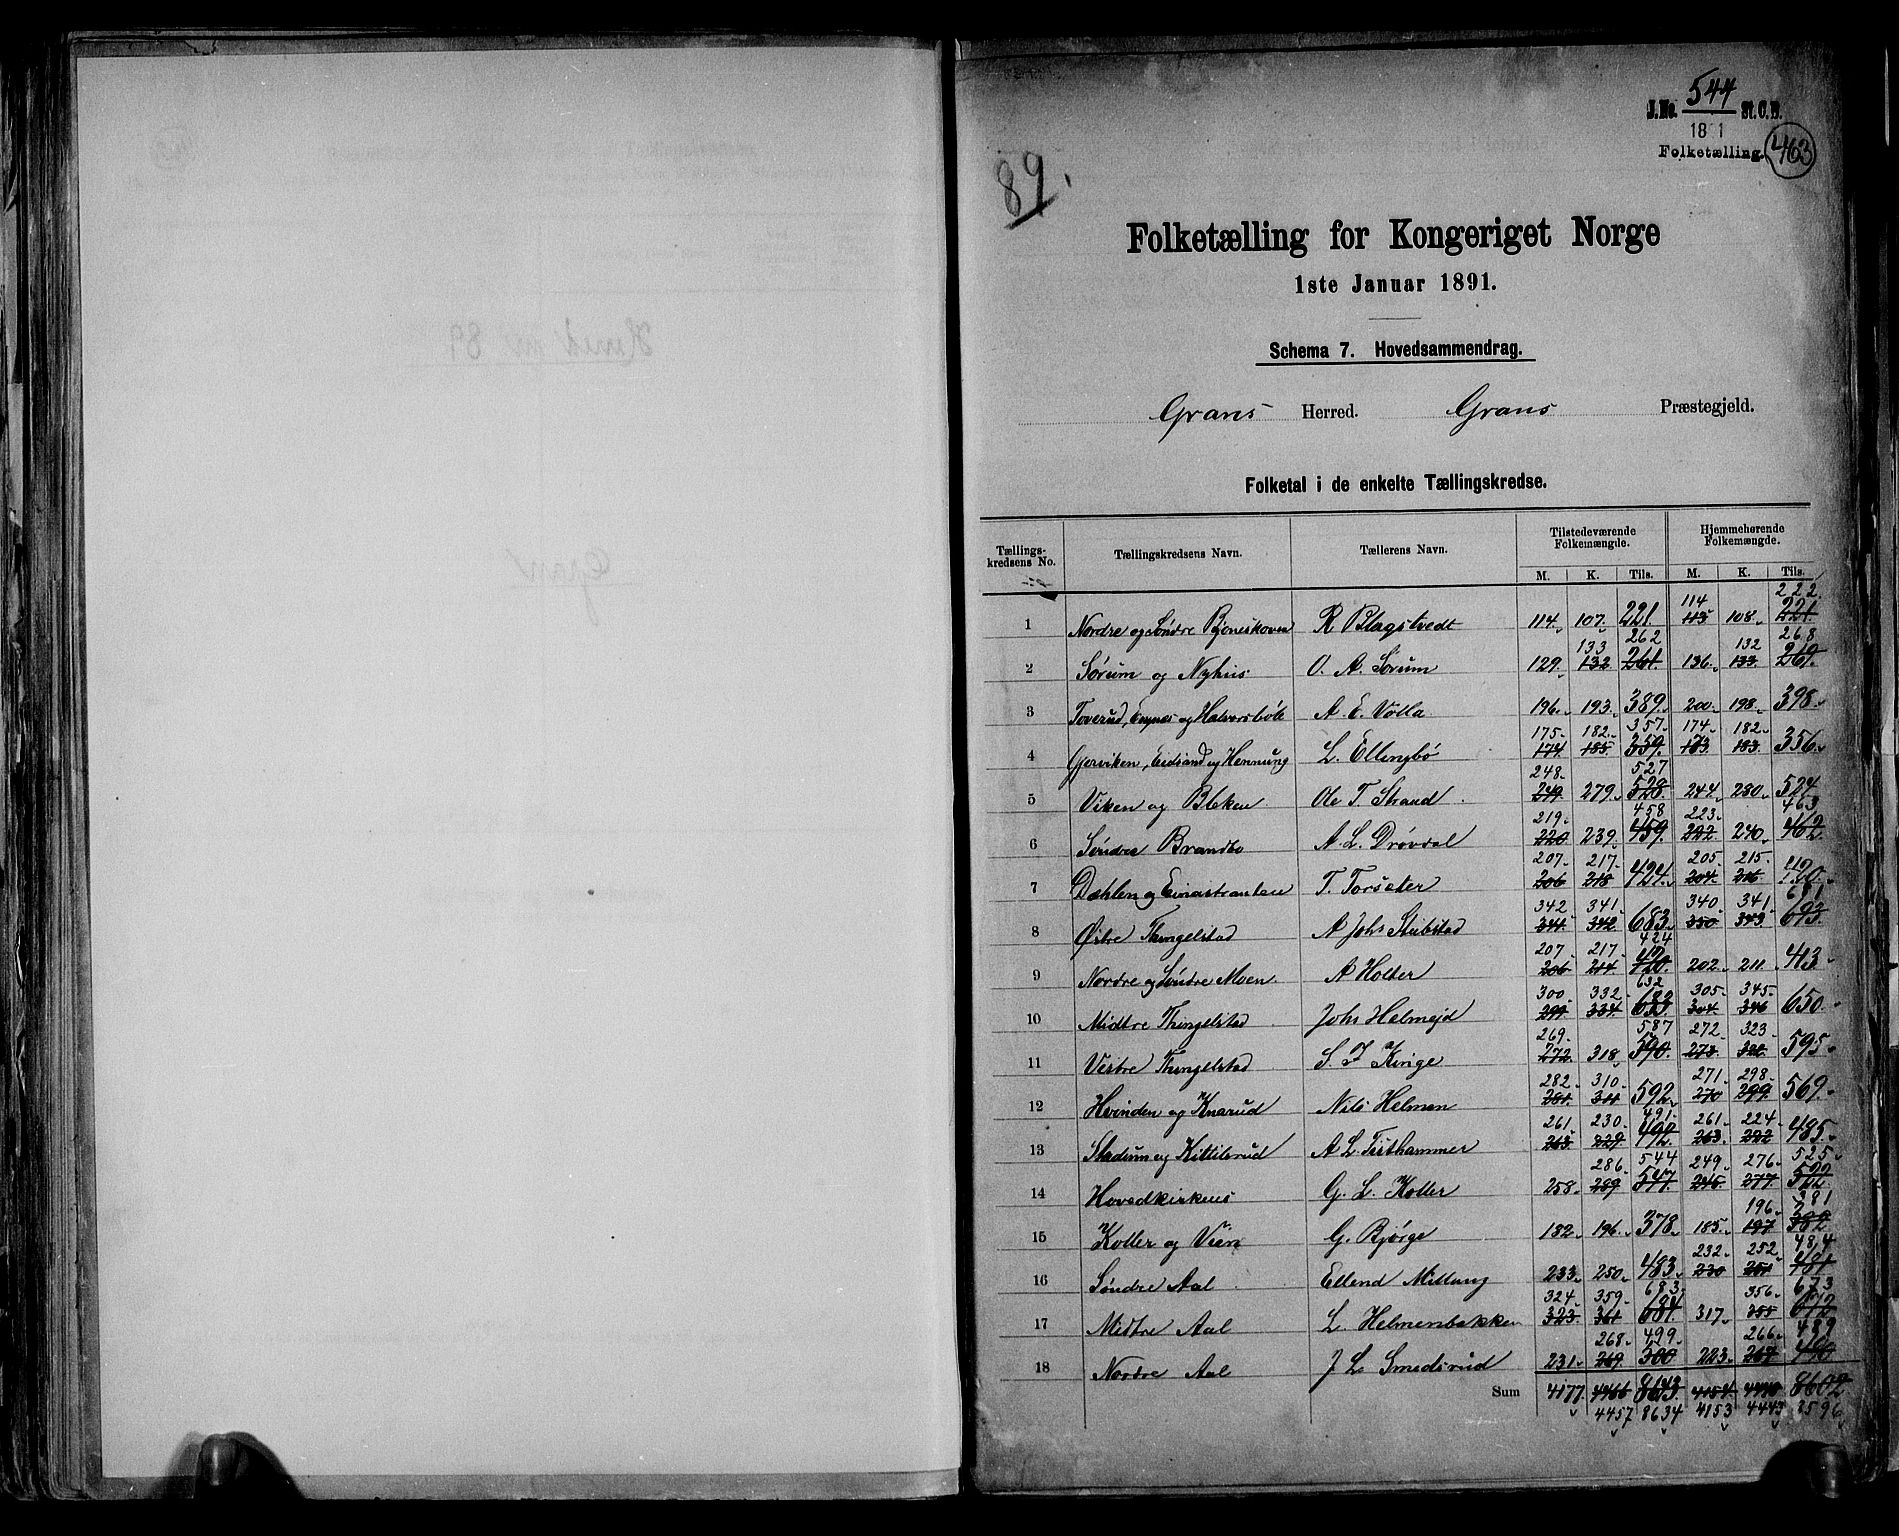 J.No. 544 St.C.B.
1891
Folketælling. 463
89.
Folketælling for Kongeriget Norge
1ste Januar 1891.
Schema 7. Hovedsammendrag.
Grans Herred. Grans Præstegjeld.
Folketal i de enkelte Tællingskredse.
Tællings-kredsens No. Tællingskredsens Navn. Tællerens Navn. Tilstedeværende Folkemængde. Hjemmehørende Folkemængde.
M. K. Tils. M. K. Tils.
114 222
1 Nordre og Søndre Bjoneskoven R Blagstvedt 114 107 221 113 108 221
133 262 132 268
2 Sørum og Nyhus O. A. Sørum 129 132 261 136 133 269
3 Toverud, Engnes og Halvorsbøle A. E. Volla 196 193 389 200 198 398
175 182 357 174 182
4 Gjerviken, Eidsand og Hennung L. Ellingbø 174 185 359 173 183 356
248 527
5 Viken og Bleken Ole T. Strand 249 279 528 244 280 524
219 458 223 463
6 Søndre Brandbo A. L. Drøvdal 220 239 459 222 240 462
207 217 205 215
7 Dæhlen og Einastranden T. Torseter 206 218 424 204 216 420
342 341 340 341 681
8 Østre Thingelstad A Johs Stubstad 341 342 683 350 343 693
207 217 424
9 Nordre og Søndre Moen A Holter 206 214 420 202 211 413
300 332 632 305 345
10 Midtre Thingelstad Johs Helmejd 299 334 633 304 346 650
269 587 272 323
11 Vestre Thingelstad S. I Kinge 272 318 590 273 322 595
282 310 271 298
12 Hvinden og Knarud Nils Helmen 281 311 592 270 299 569
261 230 491 261 224
13 Stadum og Kittilsrud A L Tiithammer 263 229 492 263 222 485
286 544 249 276 525
14 Hovedkirkens G. L. Koller 258 289 547 245 277 522
196 381
15 Koller og Vien G. Bjørge 182 196 378 185 197 382
232 252 484
16 Søndre Aal Ellend Millung 233 250 483 230 251 481
324 359 683 356 673
17 Midtre Aal L. Helmenbakken 323 361 684 317 355 672
268 499 266 489
18 Nordre Aal J L Smedsrud 231 269 500 223 267 490
Sum 4177 4466 8643 4154 4448 8602
4457 8634 4153 4443 8596